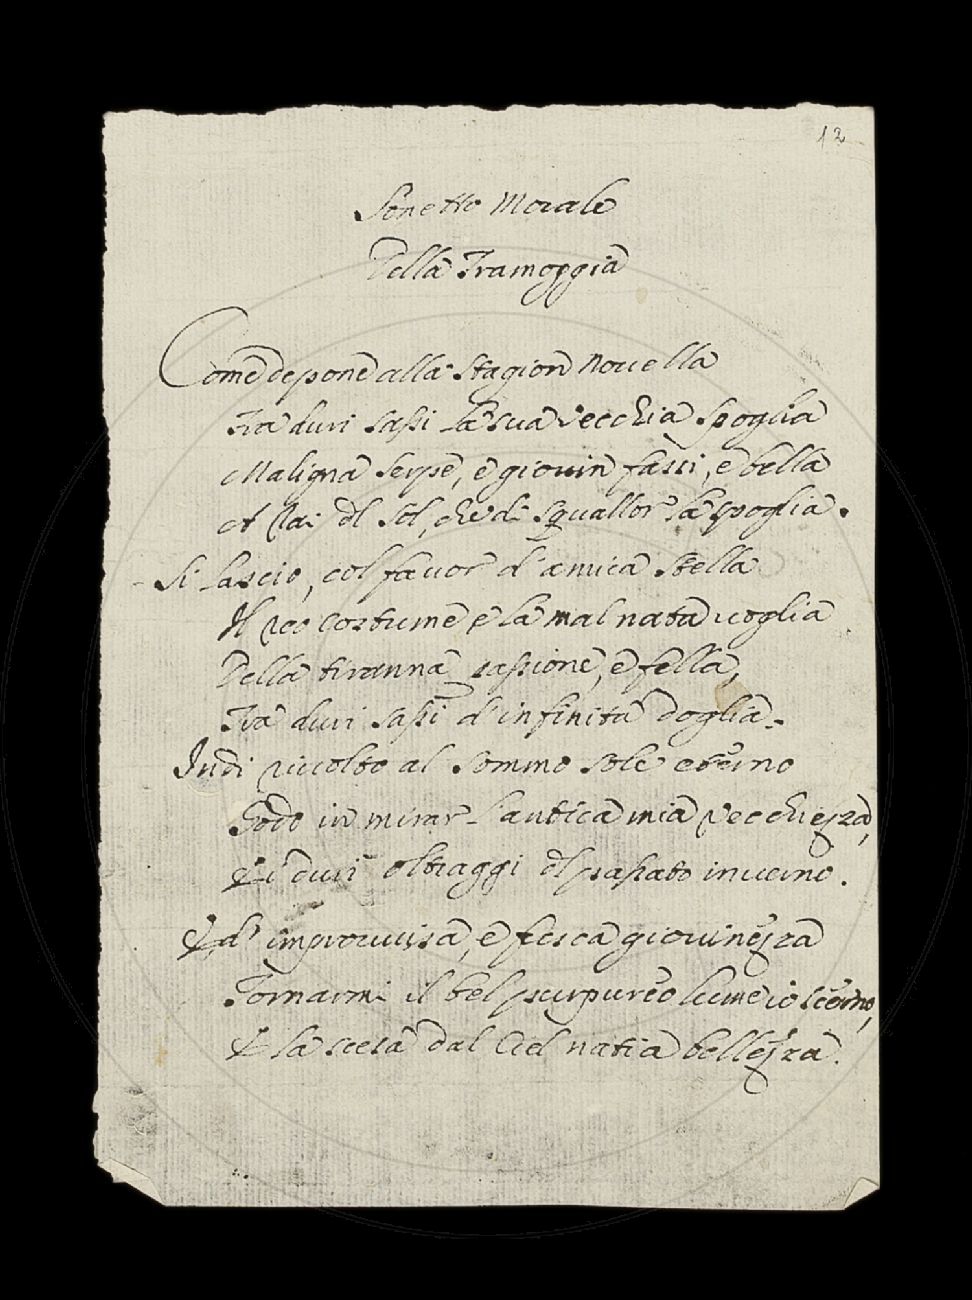 12
Sonetto Morale
Della Tramoggia
Come depone alla Stagion Nouella
Tra duri sassi la sua Vecchia spoglia
Maligna Serpe, e giouin fassi, e bella
A Rai del Sol, che di Squallor la spoglia.
Si lascio, col fauor d'amica Stella
Il reo Costume e la mal nata uoglia
Della tiranna passione, e fella,
Tra duri sassi d'infinita doglia.
Indi riuolto al sommo Sole eterno
Godo in mirar l'antica mia Vecchiezza,
E i duri oltraggi del passato inuerno.
E d'improuuisa, e fresca giouinezza
Tornarmi il bel purpureo lume io scerno,
E la scesa dal Ciel natia bellezza.